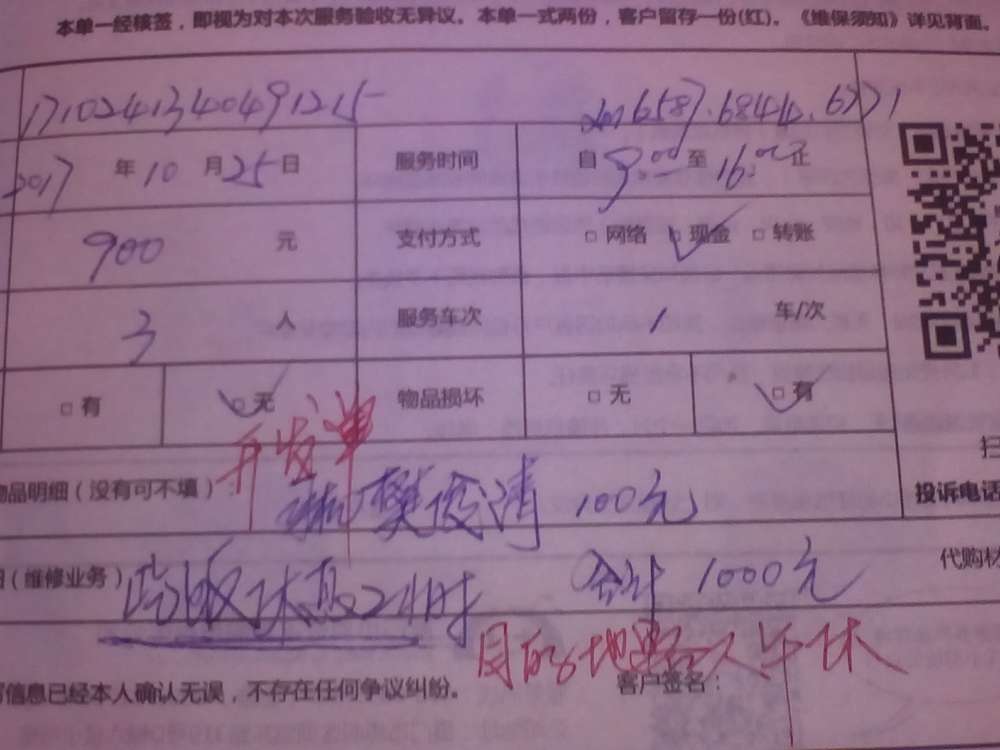 本单一经核签，即视为对本次服务验收无异议。本单一式两份，客户留存一份(红)。《维保须知》详见背面。
171024134049125
2017 年 10 月 25 日 服务时间 自 9:00 至 16:00 止
900 元 支付方式 □ 网络 □ 现金 □ 转账
3 人 服务车次 1 车/次
□ 有 □ 无 物品损坏 □ 无 □ 有
开发单
物品明细（没有可不填）： 樊俊清 100元
投诉电话
（维修业务） 休息2小时 合计 1000元
代购材
目的地 工人午休
信息已经本人确认无误，不存在任何争议纠纷。 客户签名：